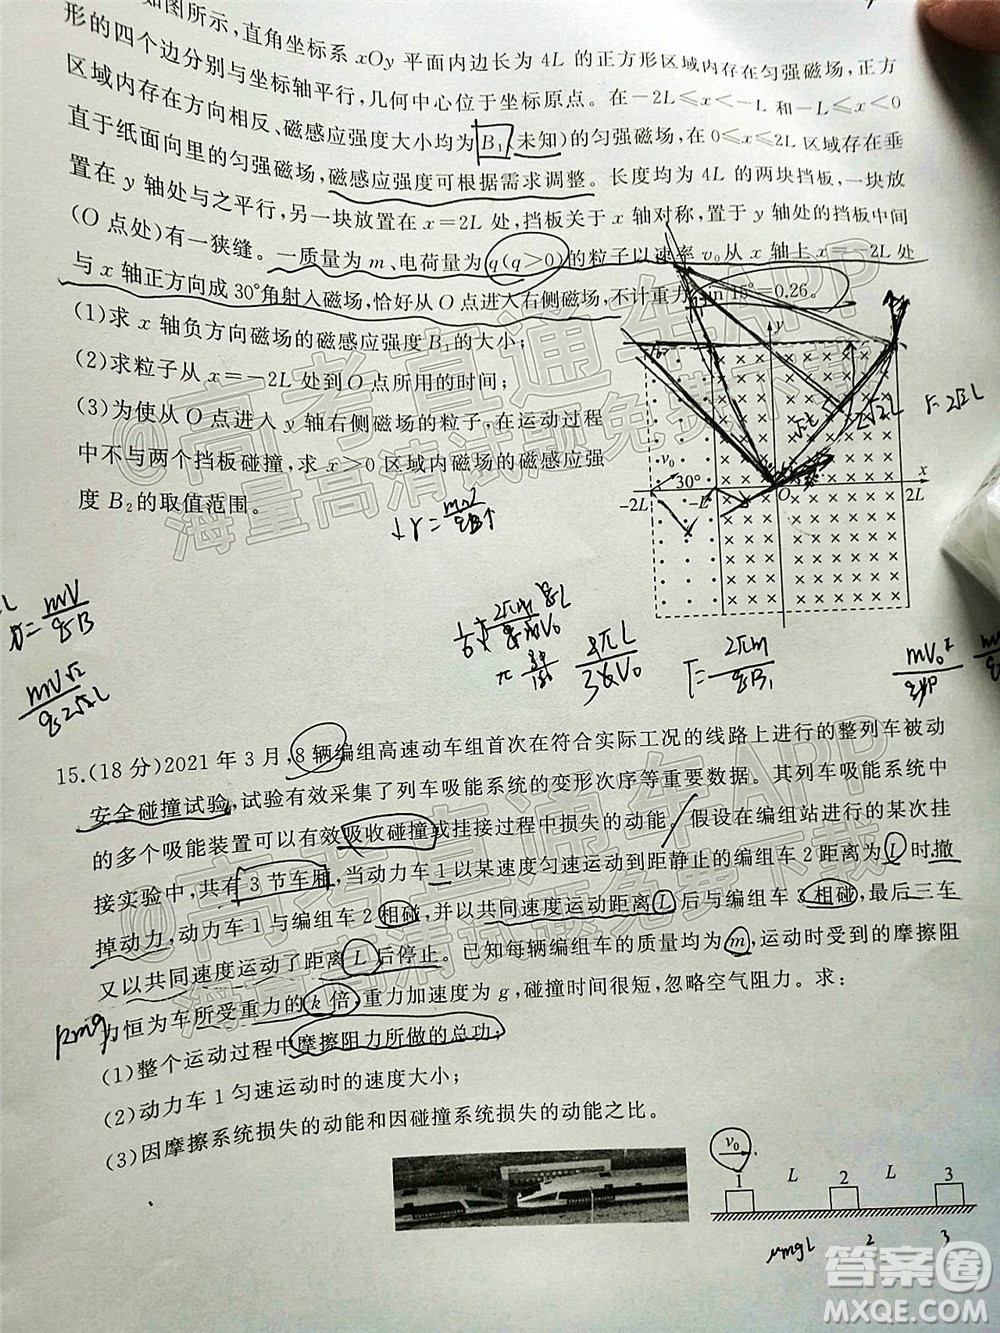 如图所示，直角坐标系 xOy 平面内边长为 4L 的正方形区域内存在匀强磁场，正方
形的四个边分别与坐标轴平行，几何中心位于坐标原点。在－2L≤x＜－L 和－L≤x≤0
区域内存在方向相反、磁感应强度大小均为 B₁(未知)的匀强磁场，在 0≤x≤2L 区域存在垂
直于纸面向里的匀强磁场，磁感应强度可根据需求调整。长度均为 4L 的两块挡板，一块放
置在 y 轴处与之平行，另一块放置在 x＝2L 处，挡板关于 x 轴对称，置于 y 轴处的挡板中间
(O 点处)有一狭缝。一质量为 m、电荷量为 q(q＞0)的粒子以速率 v₀ 从 x 轴上 x＝－2L 处
与 x 轴正方向成 30°角射入磁场，恰好从 O 点进入右侧磁场，不计重力，sin 15°＝0.26。
(1)求 x 轴负方向磁场的磁感应强度 B₁的大小；
(2)求粒子从 x＝－2L 处到 O 点所用的时间；
(3)为使从 O 点进入 y 轴右侧磁场的粒子，在运动过程
中不与两个挡板碰撞，求 x＞0 区域内磁场的磁感应强
度 B₂的取值范围。
y
v₀
30°
－2L
－L
O
x
2L
15.(18 分)2021 年 3 月，8 辆编组高速动车组首次在符合实际工况的线路上进行的整列车被动
安全碰撞试验，试验有效采集了列车吸能系统的变形次序等重要数据。其列车吸能系统中
的多个吸能装置可以有效吸收碰撞或挂接过程中损失的动能。假设在编组站进行的某次挂
接实验中，共有 3 节车厢，当动力车 1 以某速度匀速运动到距静止的编组车 2 距离为 L 时，撤
掉动力，动力车 1 与编组车 2 相碰，并以共同速度运动距离 L 后与编组车 3 相碰，最后三车
又以共同速度运动了距离 L 后停止。已知每辆编组车的质量均为 m，运动时受到的摩擦阻
力恒为车所受重力的 k 倍，重力加速度为 g，碰撞时间很短，忽略空气阻力。求：
(1)整个运动过程中摩擦阻力所做的总功；
(2)动力车 1 匀速运动时的速度大小；
(3)因摩擦系统损失的动能和因碰撞系统损失的动能之比。
v₀
1 L 2 L 3
μmgL 2 3
@高考直通车APP
海量高清试题免费下载
@高考直通车APP
海量高清试题免费下载
答案圈
MXQE.COM